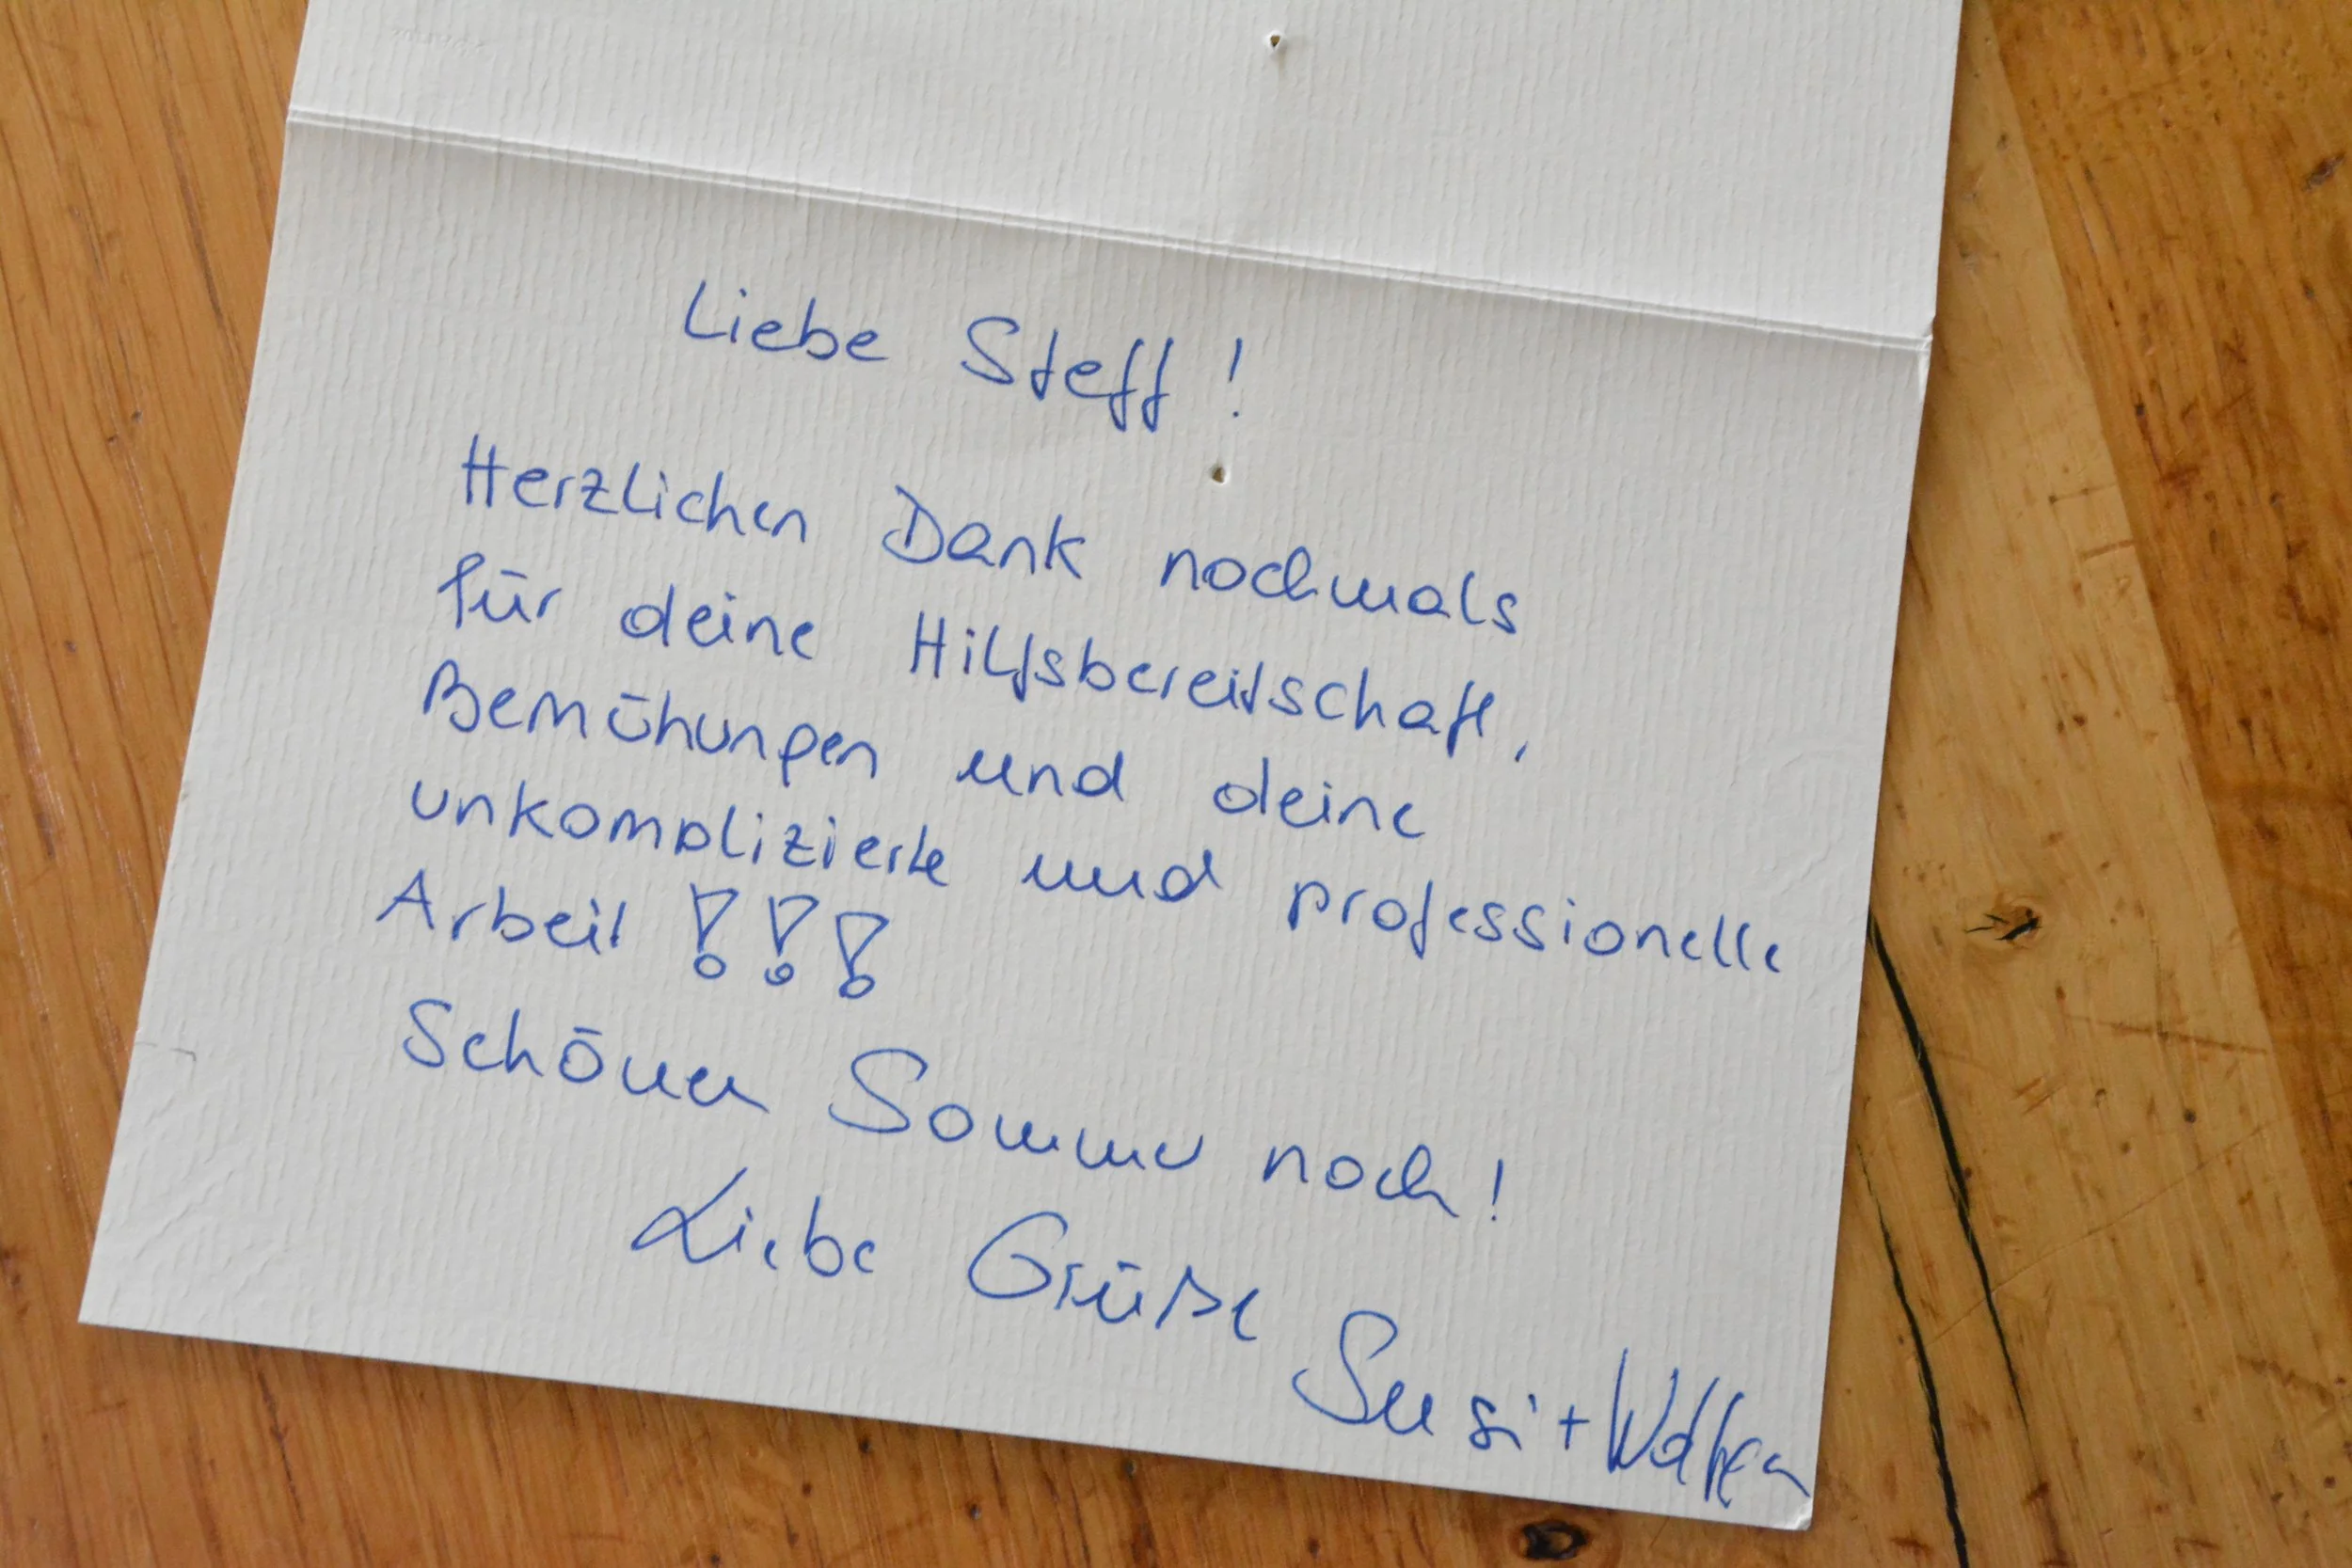 Liebe Steff!
Herzlichen Dank nochmals
für deine Hilfsbereitschaft,
Bemühungen und deine
unkomplizierte und professionelle
Arbeit !!!
Schönen Sommer noch!
Liebe Grüße
Susi +